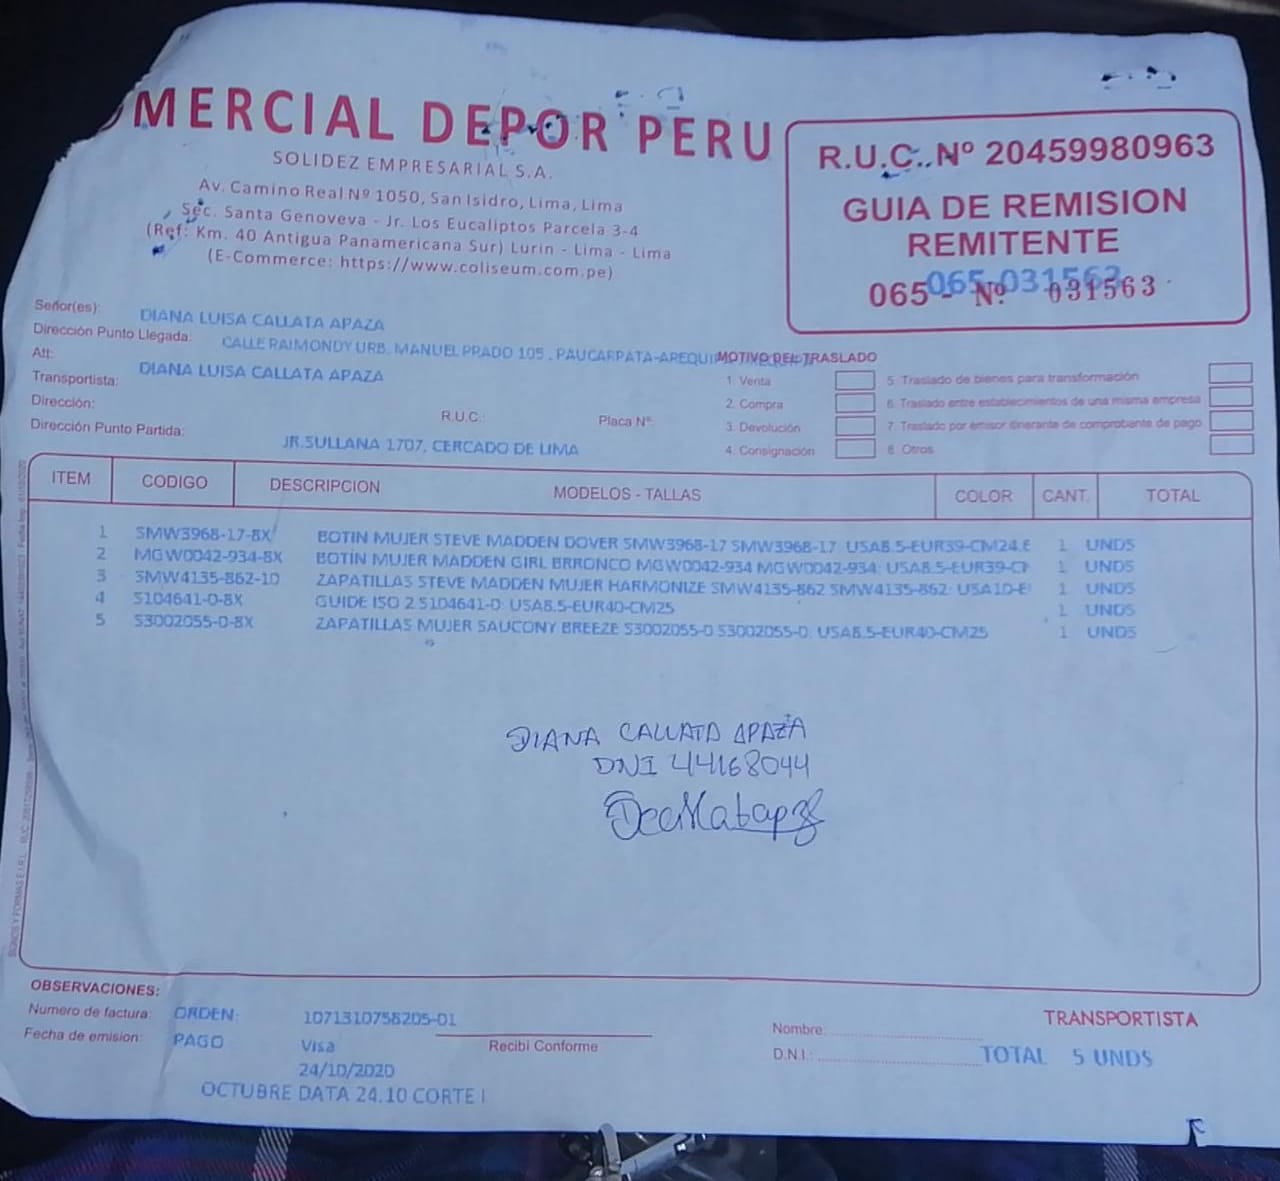 OMERCIAL DEPOR PERU
SOLIDEZ EMPRESARIAL S.A.
Av. Camino Real Nº 1050, San Isidro, Lima, Lima
Sec. Santa Genoveva - Jr. Los Eucaliptos Parcela 3-4
(Ref: Km. 40 Antigua Panamericana Sur) Lurin - Lima - Lima
(E-Commerce: https://www.coliseum.com.pe)
R.U.C. Nº 20459980963
GUIA DE REMISION
REMITENTE
065-031563
065 - Nº 031563
Señor(es): DIANA LUISA CALLATA APAZA
Dirección Punto Llegada: CALLE RAIMONDY URB. MANUEL PRADO 105 , PAUCARPATA-AREQUI
Att: DIANA LUISA CALLATA APAZA
Transportista:
Dirección: R.U.C.: Placa Nº:
Dirección Punto Partida: JR.SULLANA 1707, CERCADO DE LIMA
MOTIVO DEL TRASLADO
1. Venta 5. Traslado de bienes para transformación
2. Compra 6. Traslado entre establecimientos de una misma empresa
3. Devolución 7. Traslado por emisor itinerante de comprobante de pago
4. Consignación 8. Otros
ITEM CODIGO DESCRIPCION MODELOS - TALLAS COLOR CANT. TOTAL
1 SMW3968-17-8X BOTIN MUJER STEVE MADDEN DOVER SMW3968-17 SMW3968-17: USA8.5-EUR39-CM24.5 1 UNDS
2 MGW0042-934-8X BOTIN MUJER MADDEN GIRL BRRONCO MGW0042-934 MGW0042-934: USA8.5-EUR39-CM 1 UNDS
3 SMW4135-862-10 ZAPATILLAS STEVE MADDEN MUJER HARMONIZE SMW4135-862 SMW4135-862: USA10-E 1 UNDS
4 S104641-0-8X GUIDE ISO 2 S104641-0: USA8.5-EUR40-CM25 1 UNDS
5 S3002055-0-8X ZAPATILLAS MUJER SAUCONY BREEZE S3002055-0 S3002055-0: USA8.5-EUR40-CM25 1 UNDS
DIANA CALLATA APAZA
DNI 44168044
OBSERVACIONES:
Numero de factura: ORDEN: 1071310758205-01
Fecha de emision: PAGO Visa
24/10/2020
OCTUBRE DATA 24.10 CORTE I
Recibi Conforme
TRANSPORTISTA
Nombre:
D.N.I.: TOTAL 5 UNDS